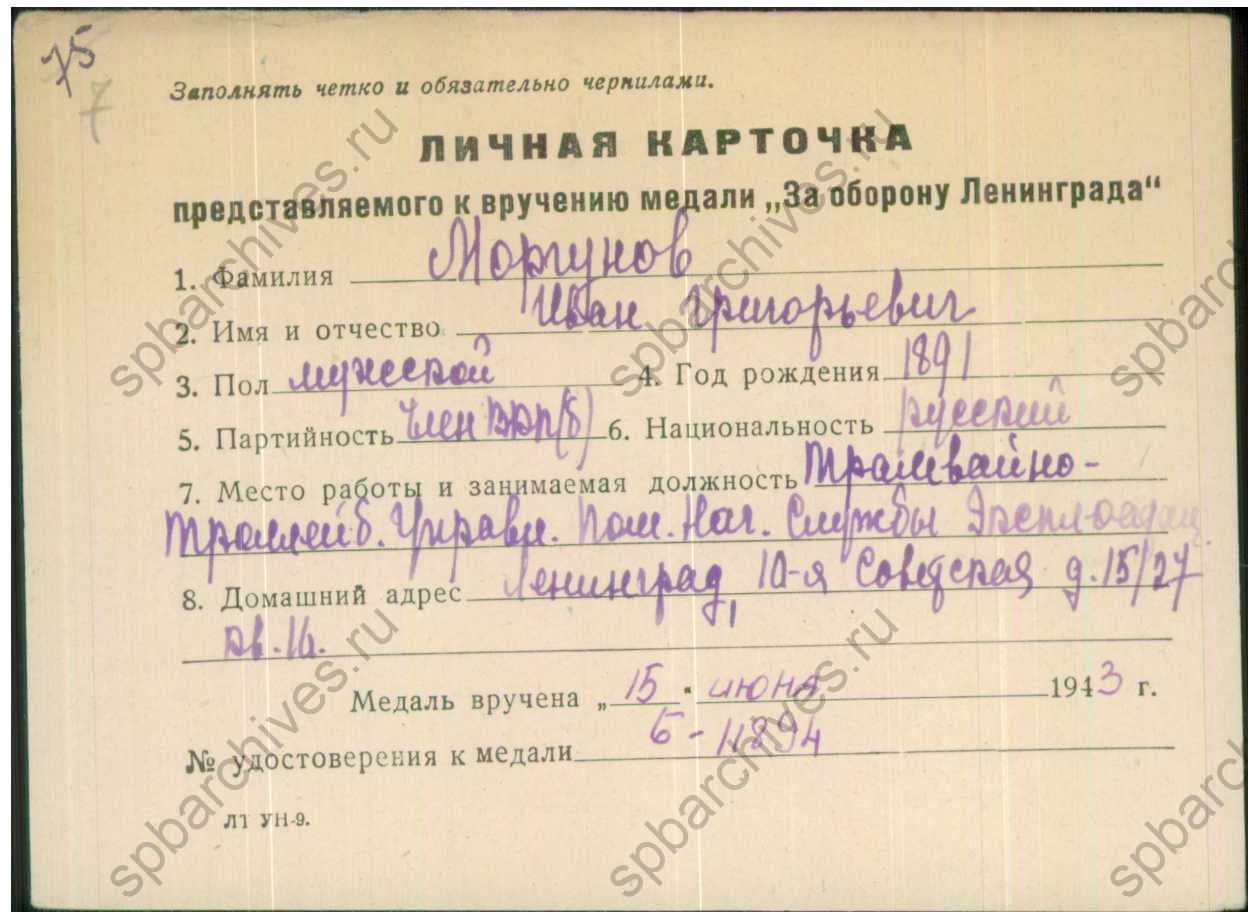 75
7
Заполнять четко и обязательно чернилами.
ЛИЧНАЯ КАРТОЧКА
представляемого к вручению медали „За оборону Ленинграда“
1. Фамилия Моргунов
2. Имя и отчество Иван Григорьевич
3. Пол мужской 4. Год рождения 1891
5. Партийность член ВКП(б) 6. Национальность русский
7. Место работы и занимаемая должность Трамвайно-
Троллейб. Управл. Пом. Нач. Службы Эксплоатац.
8. Домашний адрес Ленинград, 10-я Советская д. 15/27
кв. 16.
Медаль вручена „15" июня 1943 г.
№ удостоверения к медали Б-11894
ЛТ УН-9.
spbarchives.ru